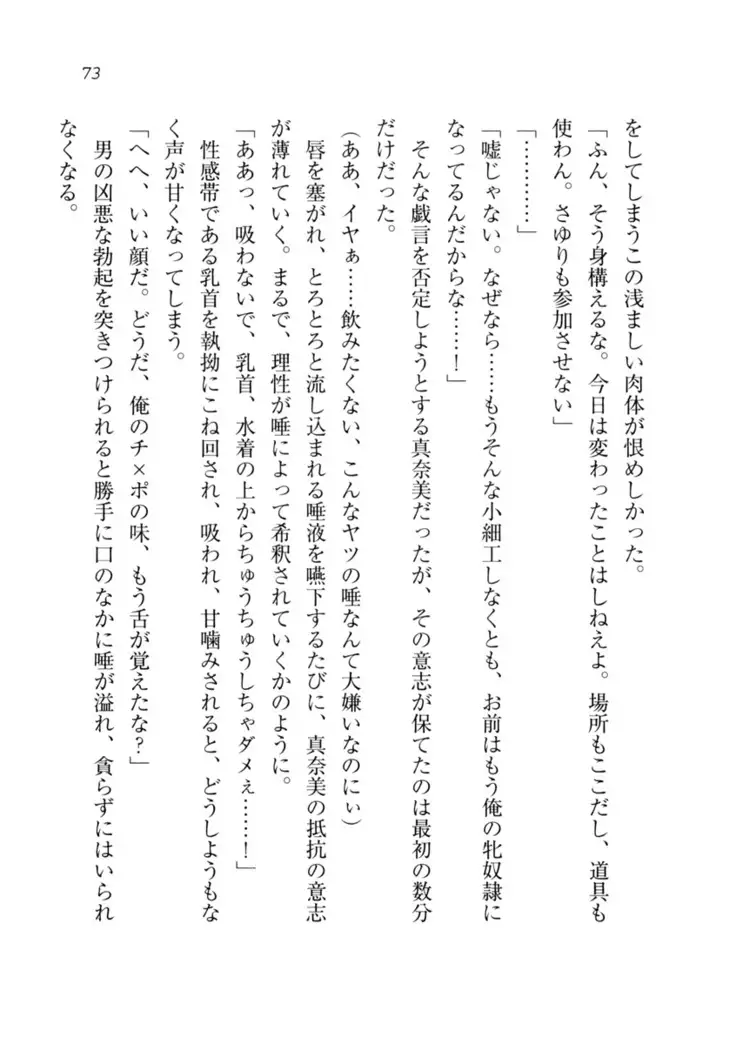 73
をしてしまうこの浅ましい肉体が恨めしかった。
「ふん、そう身構えるな。今日は変わったことはしねえよ。場所もここだし、道具も
使わん。さゆりも参加させない」
「…………」
「嘘じゃない。なぜなら……もうそんな小細工しなくとも、お前はもう俺の牝奴隷に
なってるんだからな……！」
そんな戯言を否定しようとする真奈美だったが、その意志が保てたのは最初の数分
だけだった。
（ああ、イヤぁ……飲みたくない、こんなヤツの唾なんて大嫌いなのにぃ）
唇を塞がれ、とろとろと流し込まれる唾液を嚥下するたびに、真奈美の抵抗の意志
が薄れていく。まるで、理性が唾によって希釈されていくかのように。
「ああっ、吸わないで、乳首、水着の上からちゅうちゅうしちゃダメぇ……！」
性感帯である乳首を執拗にこね回され、吸われ、甘噛みされると、どうしようもな
く声が甘くなってしまう。
「へへ、いい顔だ。どうだ、俺のチ×ポの味、もう舌が覚えたな？」
男の凶悪な勃起を突きつけられると勝手に口のなかに唾が溢れ、貪らずにはいられ
なくなる。